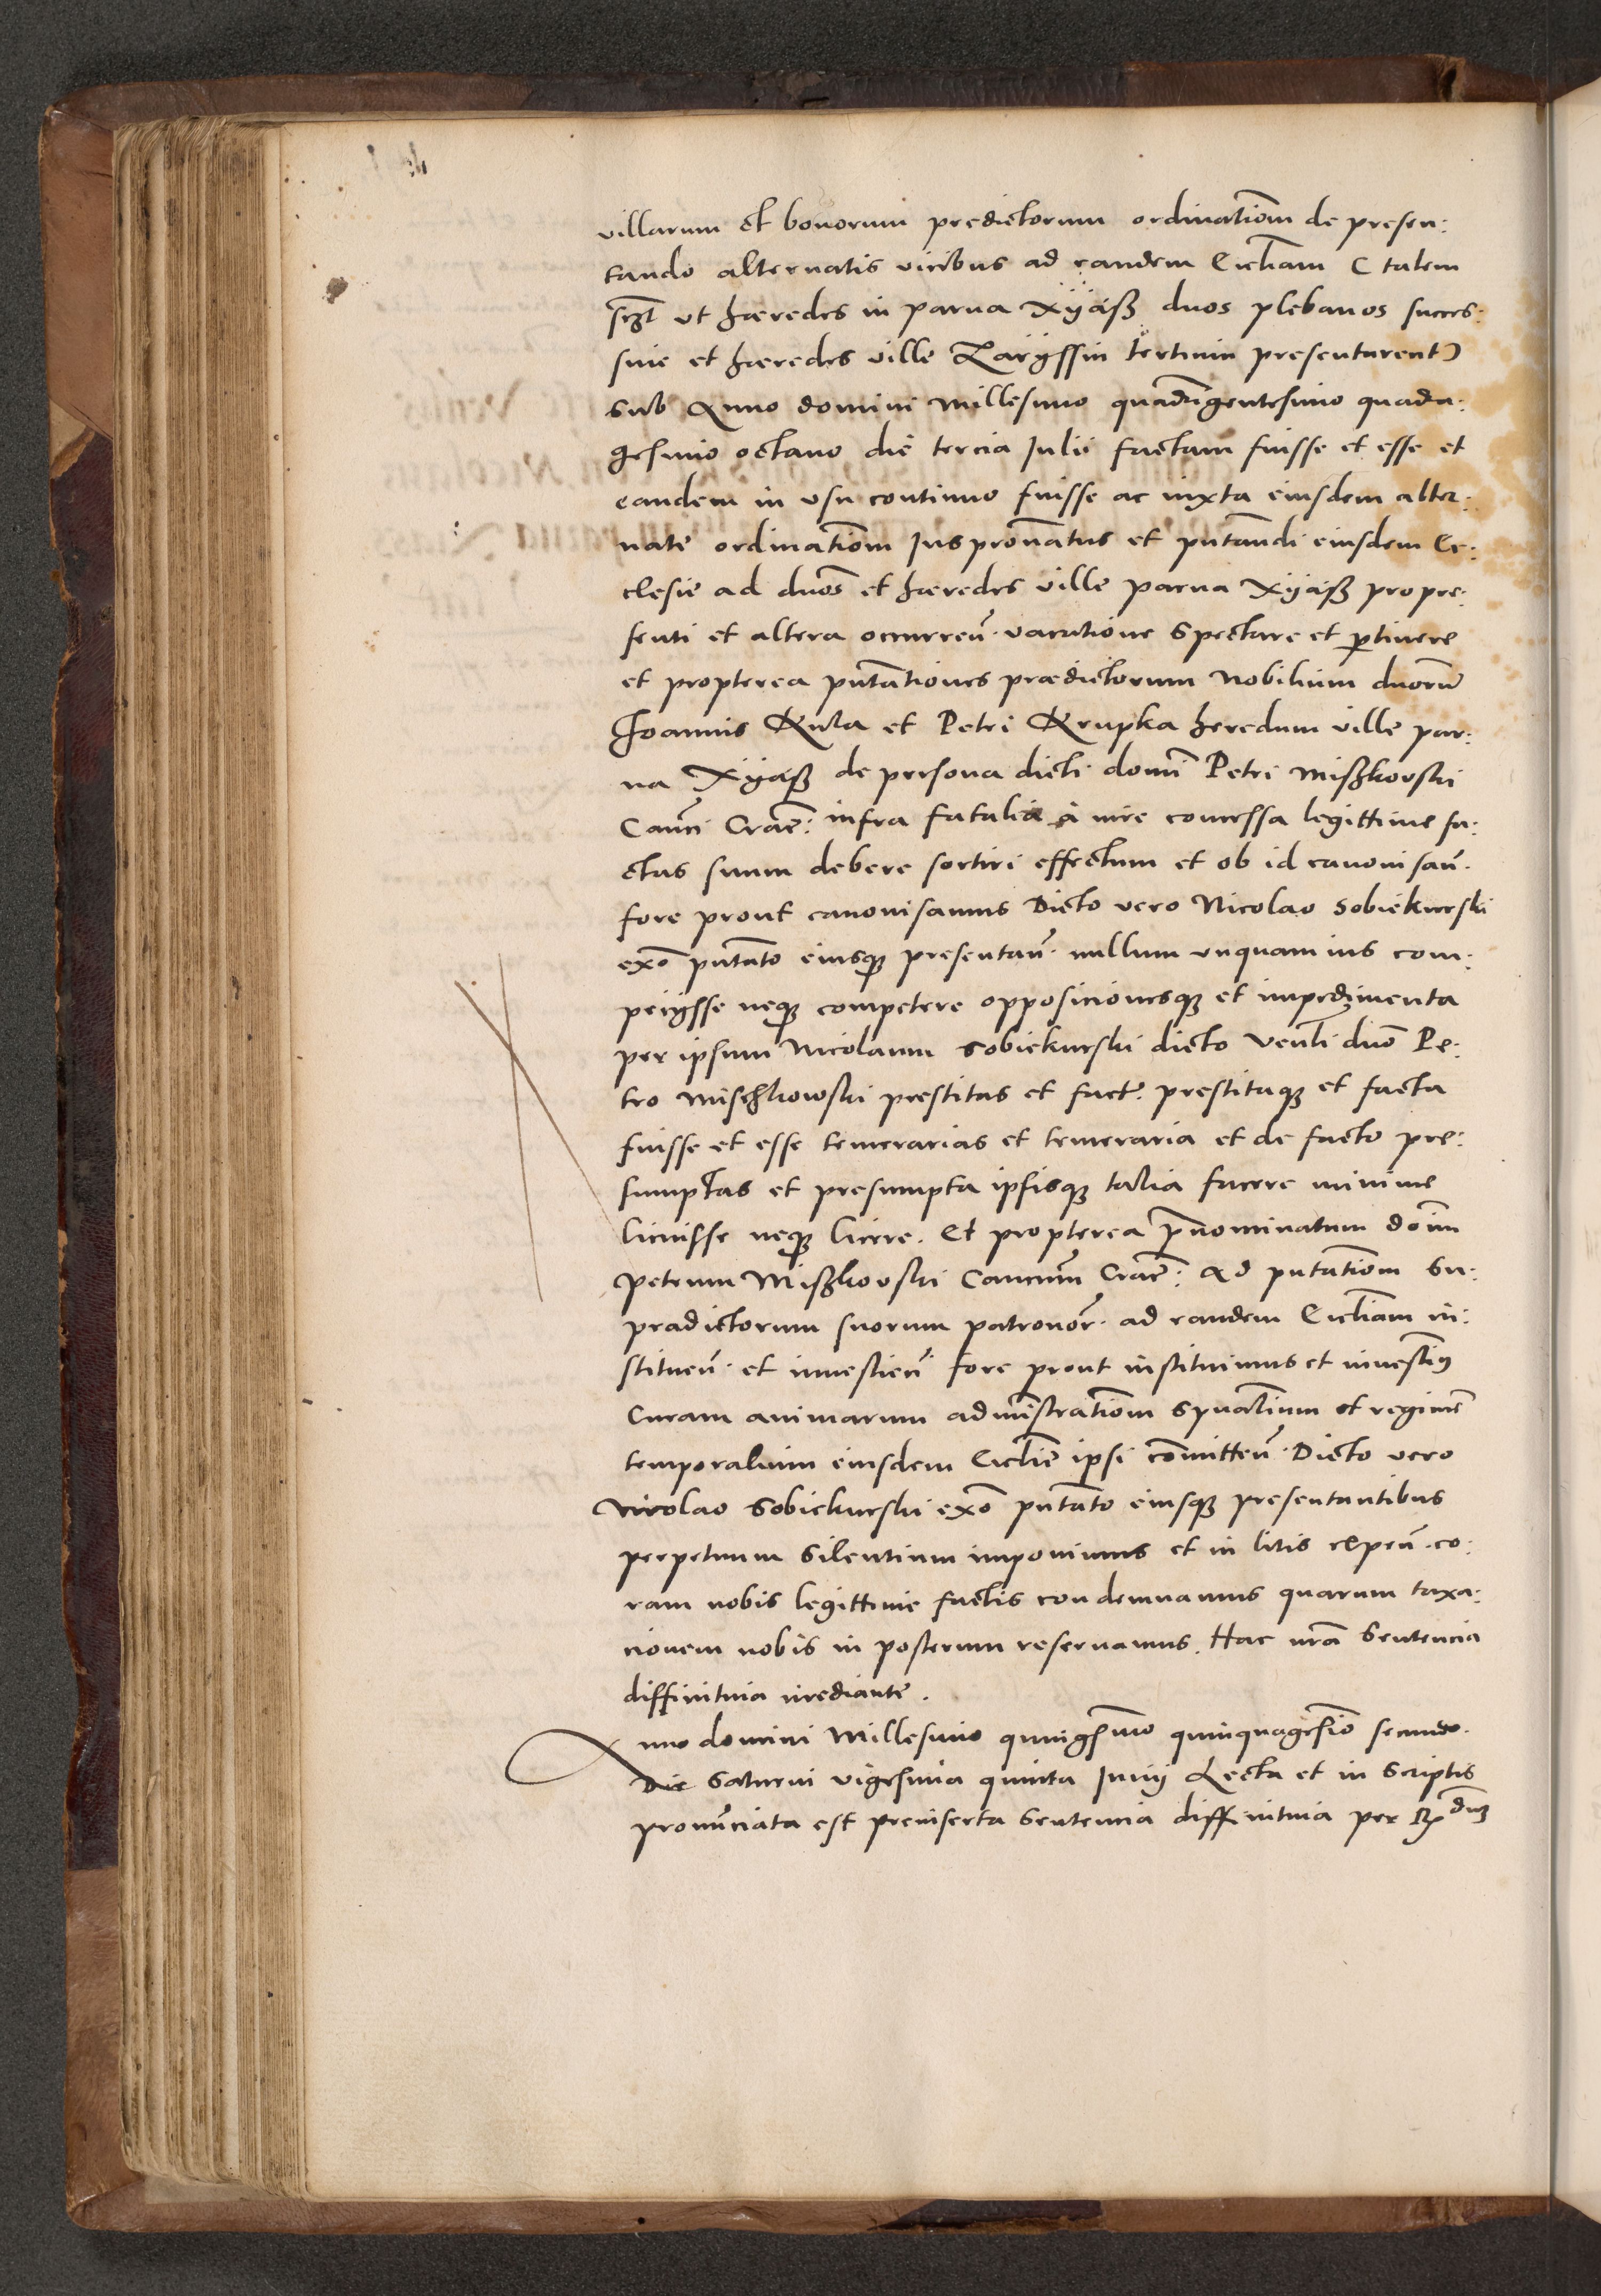 villarum et bonorum predictorum ordinatiõm de presen:
tando alternatis vicibus ad eandem Eccliam ( talem
sczt vt hæredes in parua Xÿąsß duos plebanos succes:
siue et hæredes ville Zaryssin tertium presentarent)
sub Anno domini Millesimo quadringentesimo quadra:
gesimo octauo die tercia Julii factam fuisse et esse et
eandem in vsu continuo fuisse ac iuxta eiusdem alter:
nate ordinatiõm Jus pronãtus et pñtandi eiusdem Ec:
clesie ad dños et hæredes ville parua Xyąsß pro pre:
senti et altera occurreñ. vacatione spectare et ptinere
et propterea pñtationes prædictorum Nobilium dnorũ
Joannis Kula et Petri Krupka heredum ville par:
ua Xyąsß de persona dicti domi Petri Miszkovski
Canci Crac: infra fatalia a iure concessa legittime fa:
ctas suum debere sortiri effectum et ob id canonisañ.
fore prout canonisamus Dicto vero Nicolao Sobiekurski
exõ pñtato eiusqꝫ presentañ. nullum vnquam ius com:
peiysse neqꝫ competere opposicionesqꝫ et impedimenta
per ipsum Nicolaum Sobiekurski dicto Venli dño Pe:
tro Mischkowski prestitas et fact: prestitaqꝫ et facta
fuisse et esse temerarias et temeraria et de facto pre:
sumptas et presumpta ipsisqꝫ talia facere minime
licuisse neqꝫ licere. Et propterea p̃nominatum doim
Petrum Miszkovski Cancum Crac: Ad pñtatiõm su:
pradictorum suorum patronor. ad eandem Eccliam in:
stitueñ. et inuestieñ fore prout instituimus et inuestimꝰ
Curam animarum administratiõm spualium et regimẽ
temporalium eiusdem Ecclie ipsi committeñ. Dicto vero
Nicolao Sobiekurski exõ pñtato eiusqꝫ presentantibus
perpetuum silentium imponimus et in litis expeñ. co:
ram nobis legittime factis condemnamus quarum taxa:
cionem nobis in posterum reseruamus. Hac nrã Sentencia
diffinitiua mediante.
Anno domini Millesimo quingsmo quinquagesio secundo.
Die Saturni vigesima quinta Junij Lecta et in scriptis
pronũciata est preinserta Sentencia diffinitiua per R dnꝫ